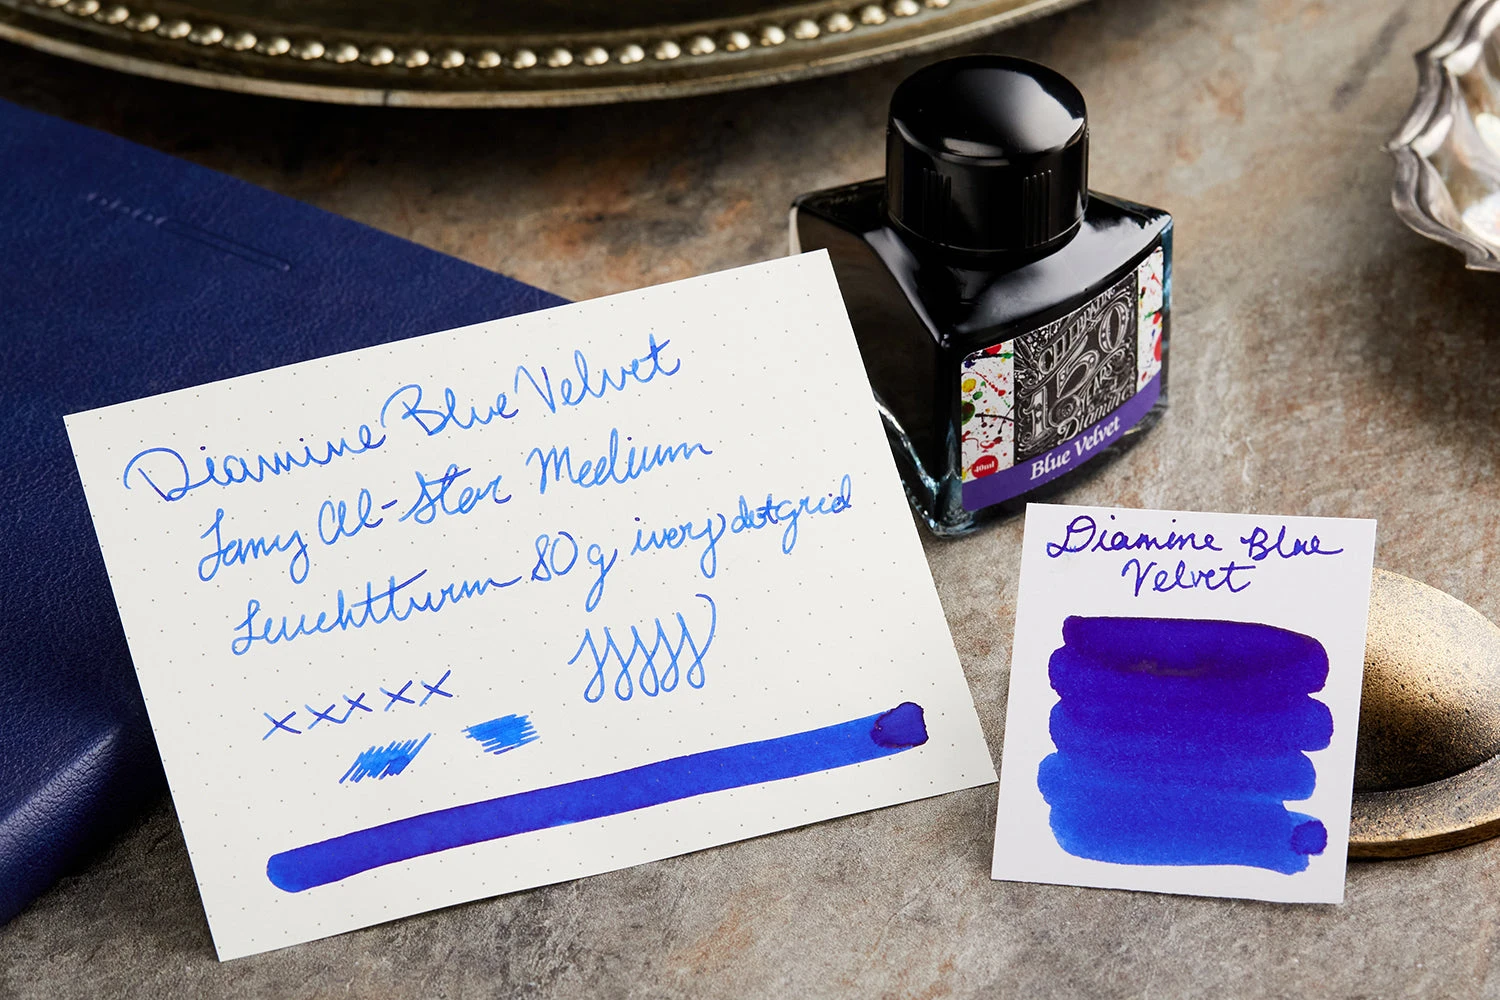 Diamine Blue Velvet
Lamy Al-Star Medium
Leuchtturm 80g ivory dotgrid
xxxxx
CELEBRATING
150
YEARS
OF
Diamine
40ml
Blue Velvet
Diamine Blue
Velvet